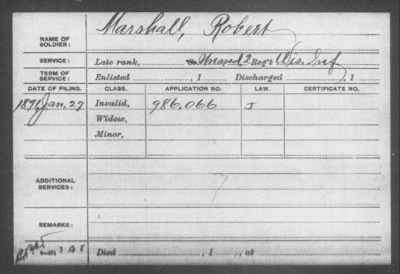 NAME OF SOLDIER: Marshall, Robert
SERVICE: Late rank, 2 Reg't Wis. Inf
TERM OF SERVICE: Enlisted , 1 Discharged , 1
DATE OF FILING. CLASS. APPLICATION NO. LAW. CERTIFICATE NO.
1891 Jan. 27 Invalid, 986.066
Widow,
Minor,
ADDITIONAL SERVICES:
REMARKS:
Died , 1 , at